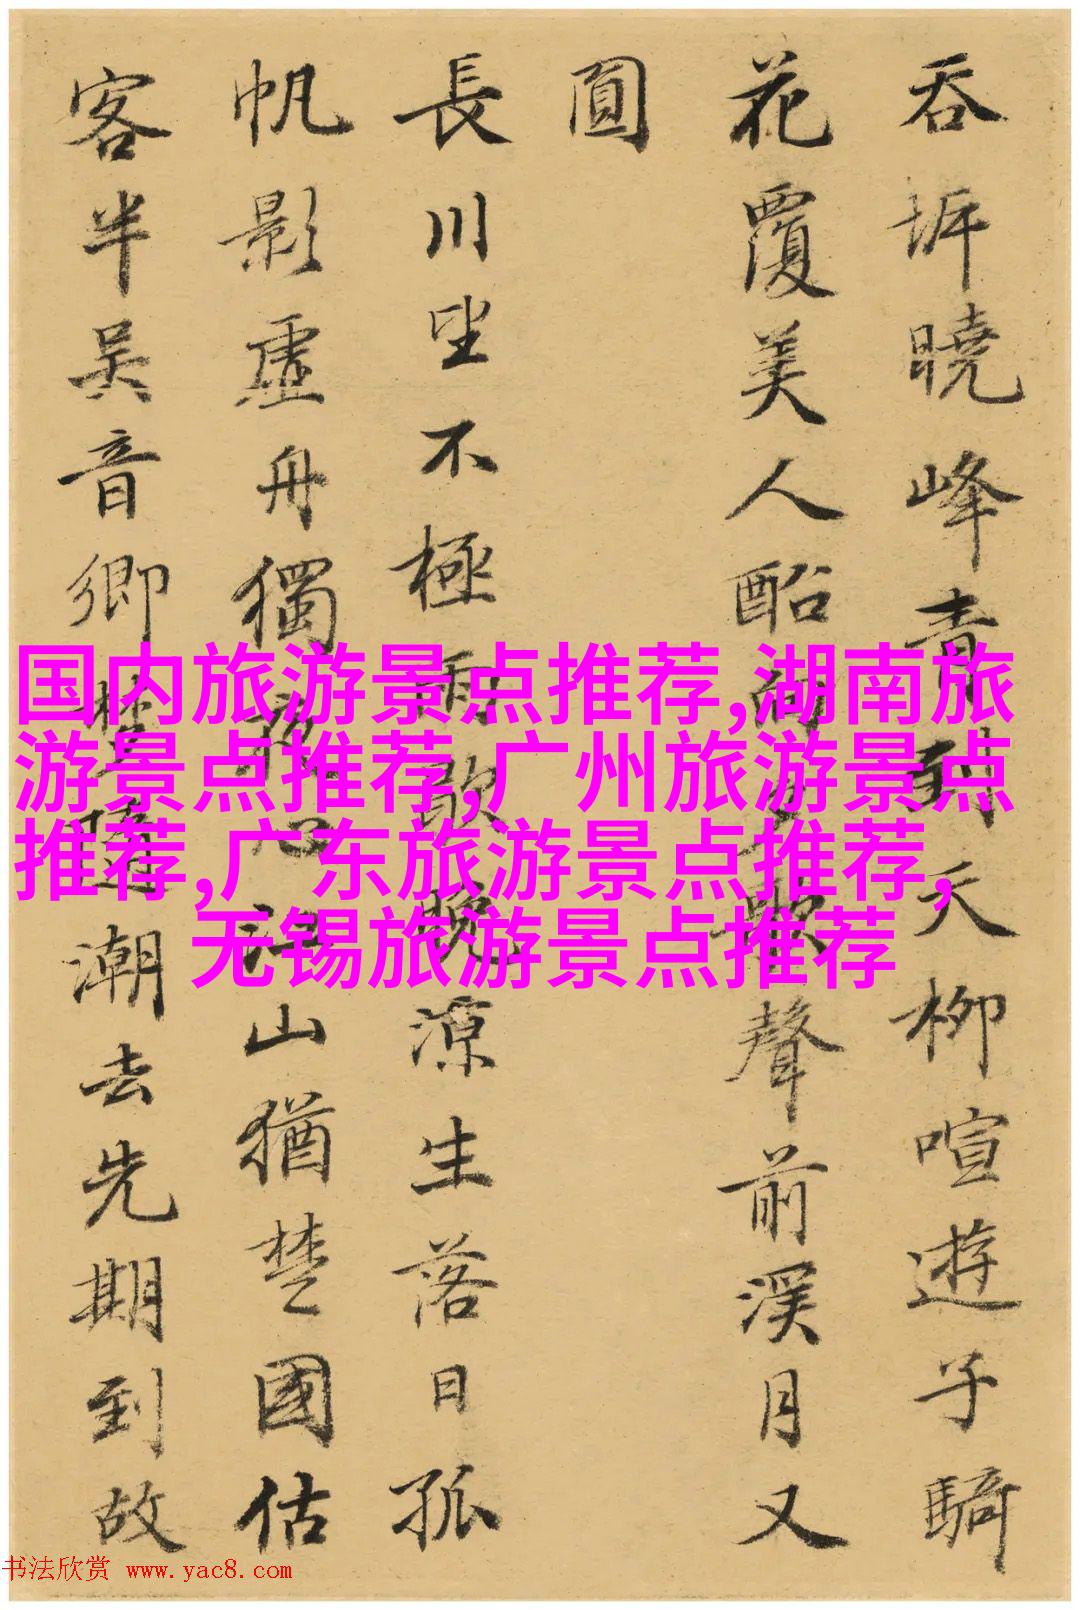 吞坼曉峰青天柳喧遊子騎
花覆美人船向夕歌聲前溪月又
圓
長川望不極雨歇晚涼生落日孤
帆影虛舟獨心江山猶楚國估
客半吳音鄉隨潮去先期到故
国内旅游景点推荐,湖南旅
游景点推荐,广州旅游景点
推荐,广东旅游景点推荐,
无锡旅游景点推荐
书法欣赏 www.yac8.com